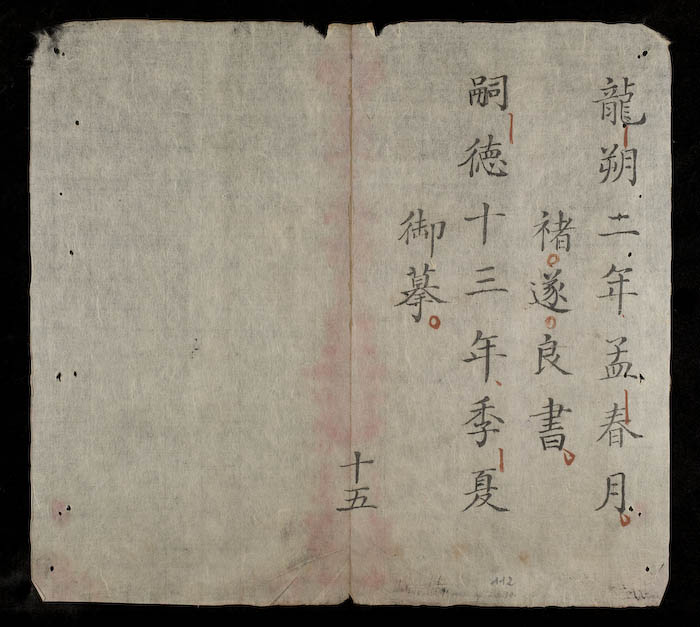 龍朔二年孟春月
褚遂良書
嗣德十三年季夏
御摹
十五
112